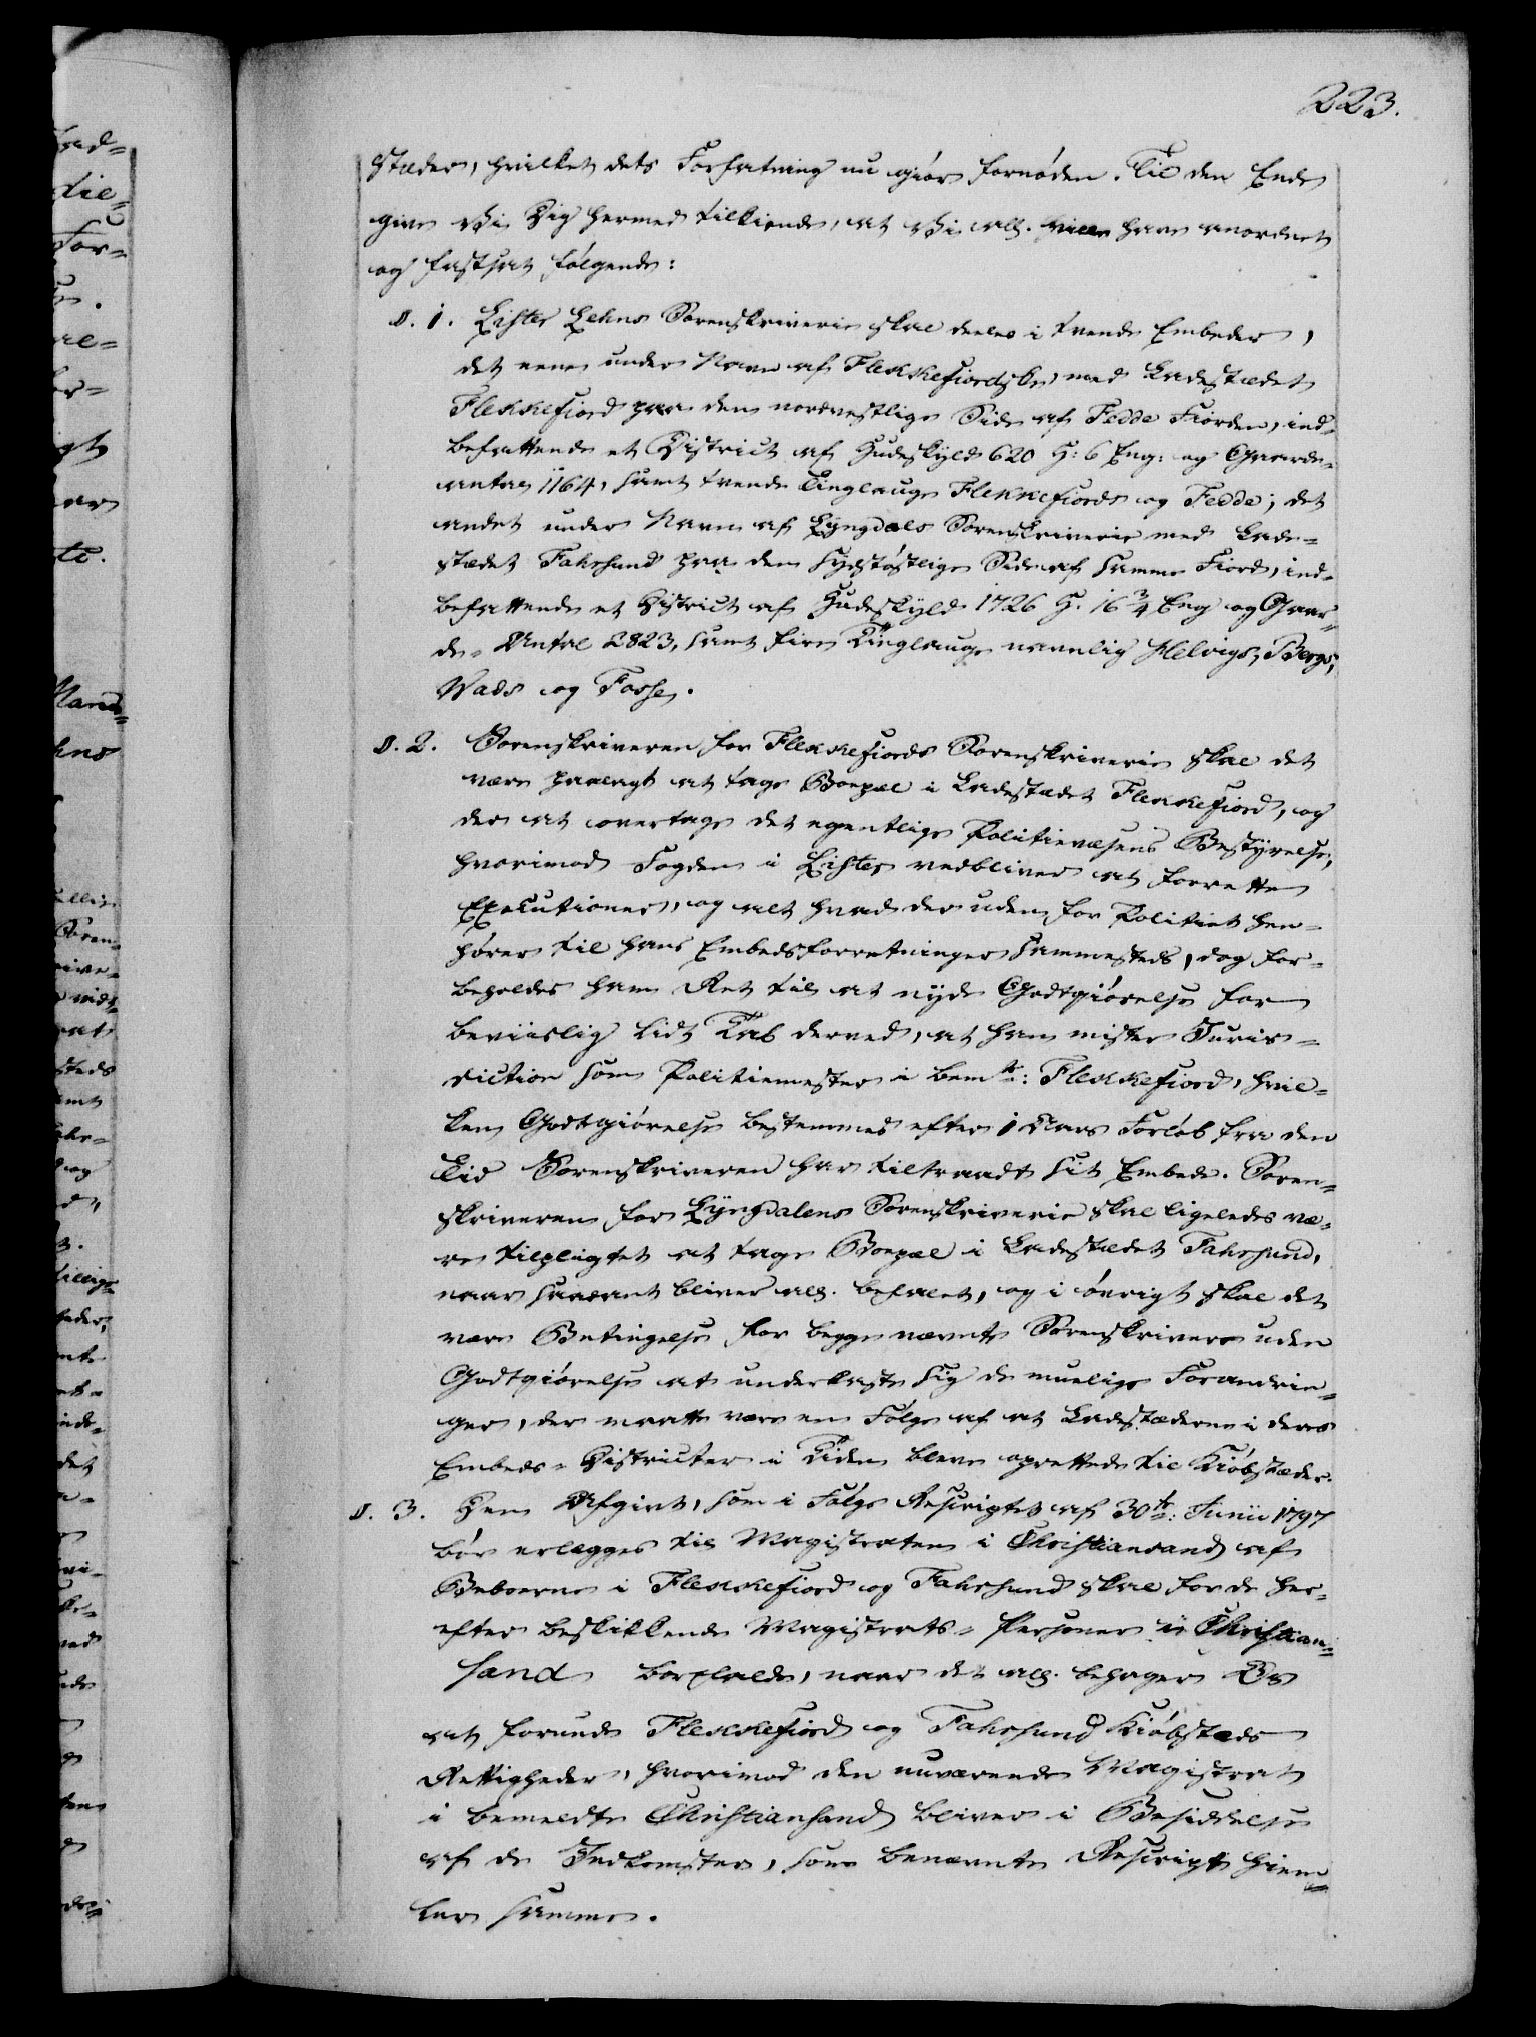 223.
stæder, hvilket dets Forfatning nu giør fornøden. Til den Ende
give Vi Dig hermed tilkiende, at Vi all. have anordnet
og fastsat følgende:
§. 1. Lister Lehns Sorenskriverie skal deeles i tvende Embeder,
det eene under Navn af Flekkefiords, med Ladestædet
Flekkefiord paa den nordvestlige Side af Fedde Fiorden, ind-
befattende et District af Hudeskyld 620 H: 6 Eng: og Gaarde-
antal 1164, samt tvende Tinglauge Flekkefiords og Fedde; det
andet under Navn af Lyngdals Sorenskriverie med Lade-
stædet Fahrsund paa den sydostlige Side af samme Fiord, ind-
befattende et District af Hudeskyld 1726 H. 16 3/4 Eng og Gaar-
de-Antal 2823, samt fire Tinglauge navnlig Helvigs, Bergs,
Vads og Fosse.
§. 2. Sorenskriveren for Flekkefiords Sorenskriverie skal det
være paalagt at tage Boepæl i Ladestædet Flekkefiord, og
der at overtage det egentlige Politievæsens Bestyrelse,
hvorimod Fogden i Lister vedbliver at forrette
Executioner, og alt hvad der uden for Politiet hen-
hører til hans Embedsforretninger sammesteds, dog for-
beholdes ham Ret til at nyde Godtgiørelse for
beviislig lidt Tab derved, at han mister Juris-
diction som Politiemester i bemte: Flekkefiord, hvil-
ken Godtgiørelse bestemmes efter 1 Aars Forløb fra den
Tid Sorenskriveren har tiltraadt sit Embede. Soren-
skriveren for Lyngdalens Sorenskriverie skal ligeledes væ-
re tilpligtet at tage Boepæl i Ladestædet Fahrsund,
naar saadant bliver all. befalet, og i øvrigt skal det
være Betingelse for begge nævnte Sorenskrivere uden
Godtgiørelse at underkaste sig de muelige Forandrin-
ger, der maatte være en Følge af at Ladestæderne i deres
Embeds-Districter i Tiden bleve oprettede til Kiøbstæder.
§. 3. Den Afgivt, som i Følge Rescriptet af 30te: Junii 1797
bør erlægges til Magistraten i Christiansand af
Beboerne i Flekkefiord og Fahrsund skal for de her-
efter beskikkende Magistrats-Personer i Christian-
sand bortfalde, naar det all. behager Os
at forunde Flekkefiord og Fahrsund Kiøbstæds
Rettigheder, hvorimod den nuværende Magistrat
i bemeldte Christiansand bliver i Besiddelse
af de Indkomster, som benævnte Rescript hiem-
ler samme.